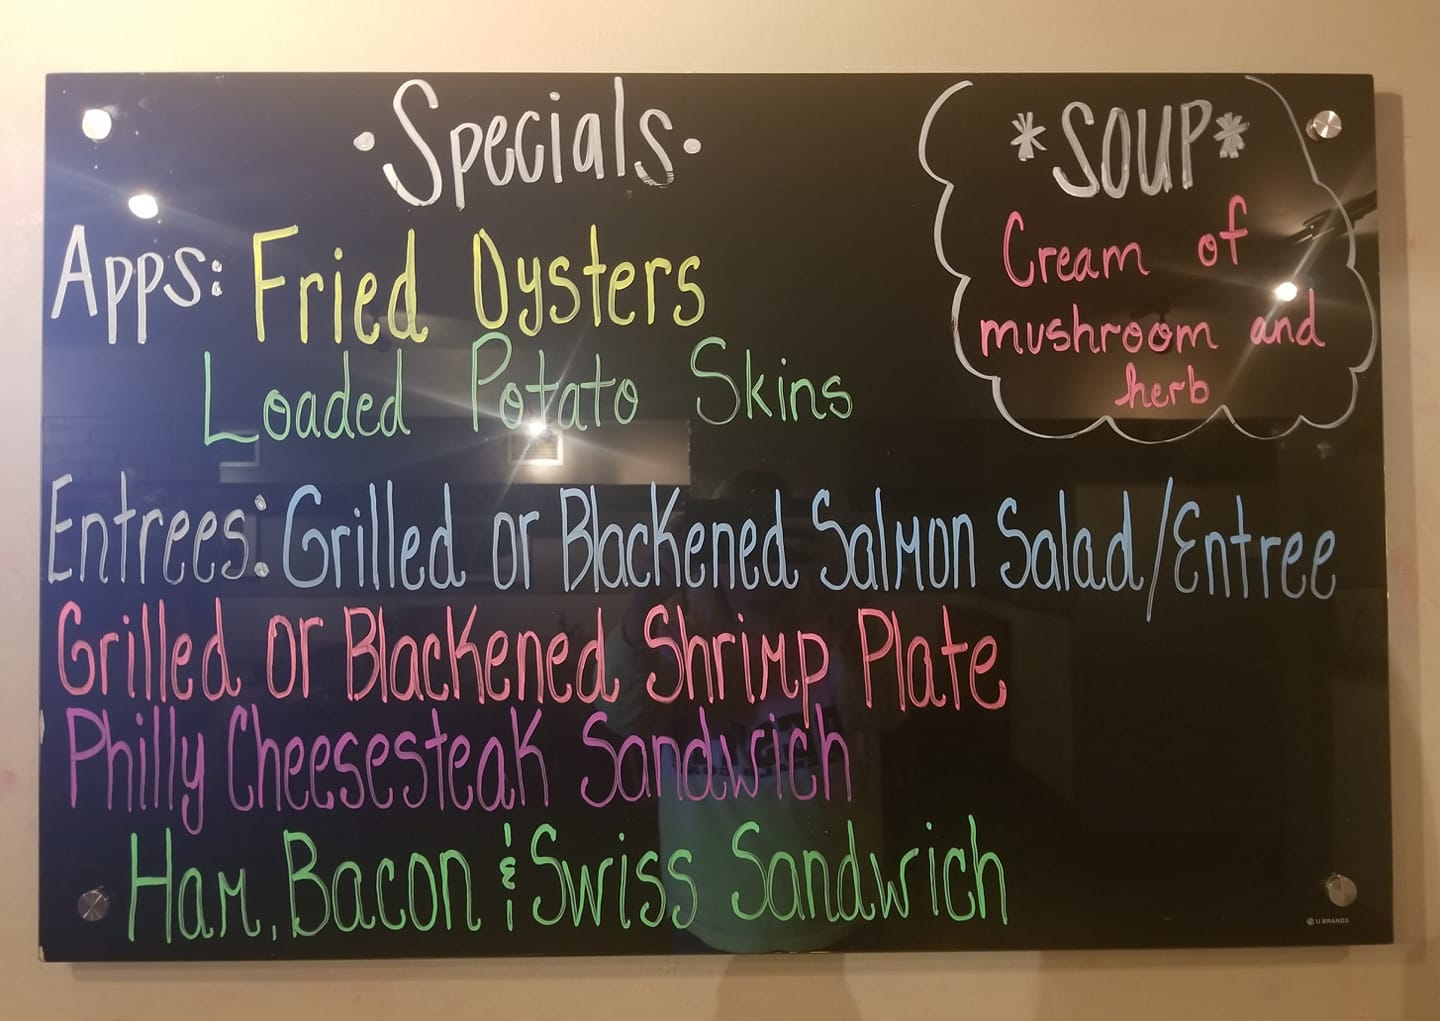 ·Specials·
Apps: Fried Oysters
Loaded Potato Skins
*SOUP*
Cream of
mushroom and
herb
Entrees: Grilled or Blackened Salmon Salad/Entree
Grilled or Blackened Shrimp Plate
Philly Cheesesteak Sandwich
Ham, Bacon & Swiss Sandwich
U BRANDS